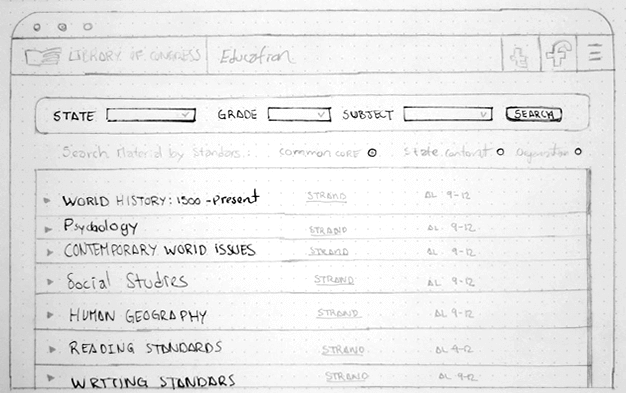 LIBRARY OF CONGRESS Education
STATE GRADE SUBJECT SEARCH
Search Material by Standars: common core State content Organisation
WORLD HISTORY: 1500 - Present STRAND AL 9-12
Psychology STRAND AL 9-12
CONTEMPORARY WORLD ISSUES STRAND AL 9-12
Social Studies STRAND AL 9-12
HUMAN GEOGRAPHY STRAND AL 9-12
READING STANDARDS STRAND AL 9-12
WRITING STANDARS STRAND AL 9-12